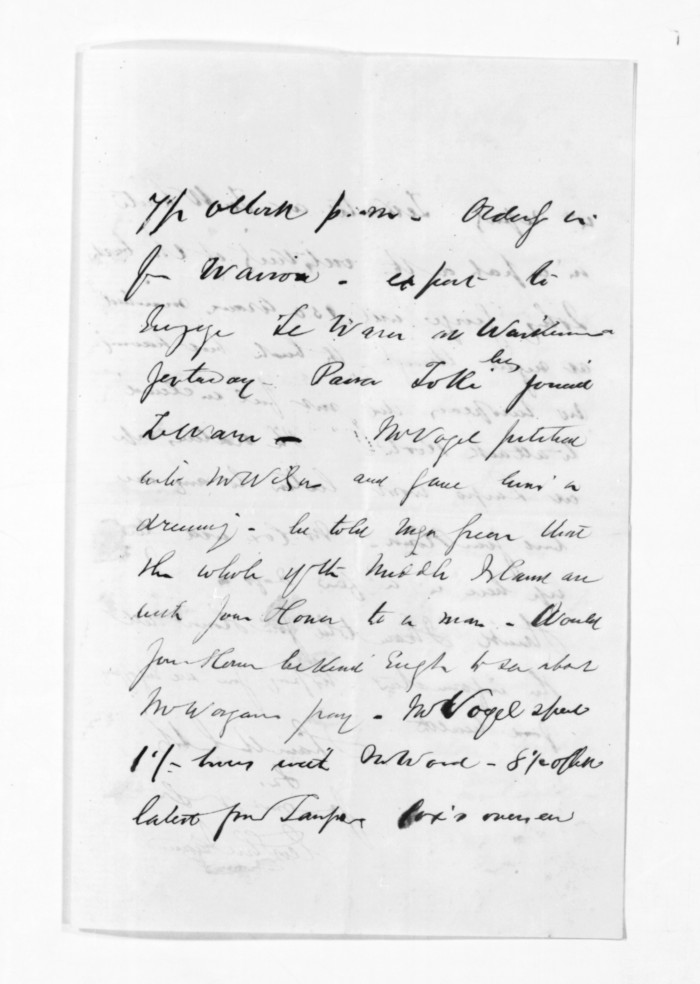 7½ oClock p.m. - Orderly in
from Wairoa - expect to
Engage Te Waru at Waikaremoana
yesterday - Paora Toki has joined
Te Waru - Mr Vogel pitched
into McWilson and gave him a
dressing - he told that
the whole of the Middle Island are
with your Honor to a man - Would
your Honor be kind Enough to see about
Mr Worgans pay - Mr Vogel spent
1½ hours with Mr Ward - 8½ oClock
latest from Taupo Cox's overseer